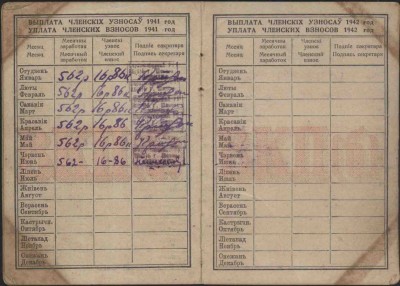 ВЫПЛАТА ЧЛЕНСКІХ УЗНОСАЎ 1941 год
УПЛАТА ЧЛЕНСКИХ ВЗНОСОВ 1941 год
Месяц Месячны заработак Членскі узнос Подпіс сакратара
Месяц Месячный заработок Членский взнос Подпись секретаря
Студзень
Январь 562р 16р86к
Люты
Февраль 562р 16р86к
Сакавік
Март 562р 16р86к
Красавік
Апрель 562р 16р86
Май
Май 562р 16р86к
Червень
Июнь 562- 16-86
Ліпень
Июль
Жнівень
Август
Верасень
Сентябрь
Кастрычн.
Октябрь
Лістапад
Ноябрь
Снежань
Декабрь
ВЫПЛАТА ЧЛЕНСКІХ УЗНОСАЎ 1942 год
УПЛАТА ЧЛЕНСКИХ ВЗНОСОВ 1942 год
Месяц Месячны заработак Членскі узнос Подпіс сакратара
Месяц Месячный заработок Членский взнос Подпись секретаря
Студзень
Январь
Люты
Февраль
Сакавік
Март
Красавік
Апрель
Май
Май
Червень
Июнь
Ліпень
Июль
Жнівень
Август
Верасень
Сентябрь
Кастрычн.
Октябрь
Лістапад
Ноябрь
Снежань
Декабрь